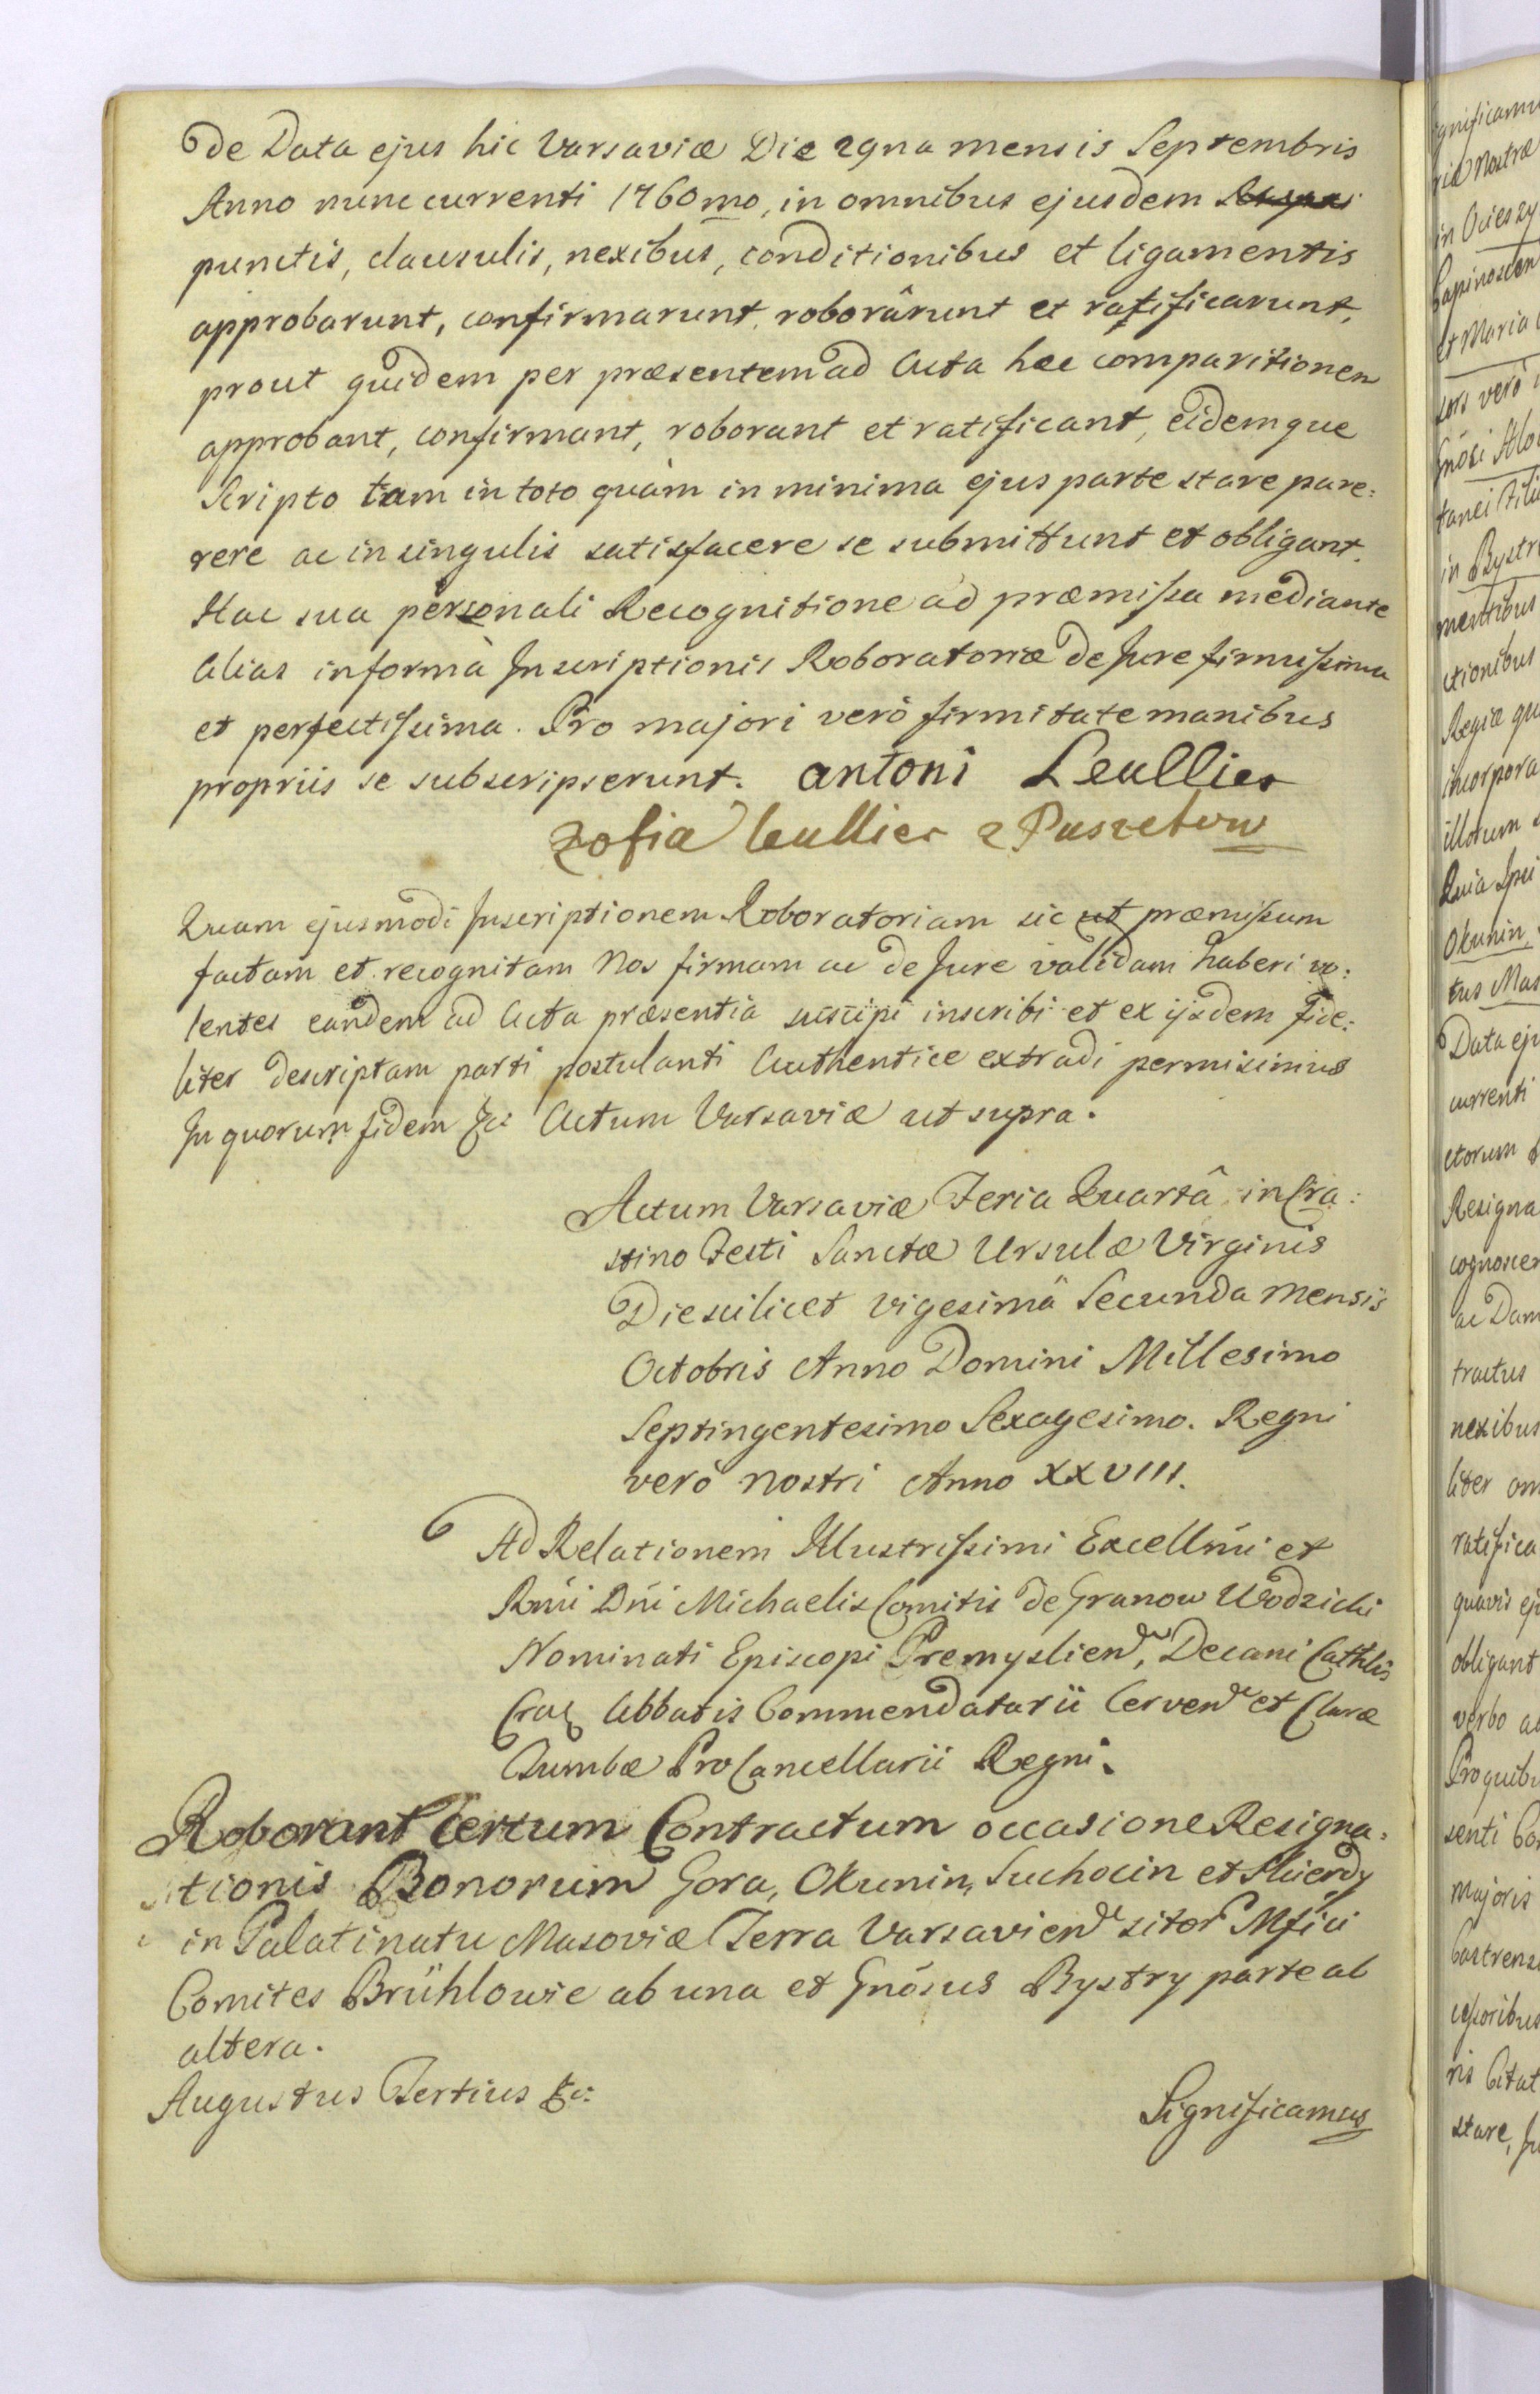 De Data ejus hic Varsaviæ Die 29na mensis Septembris
Anno nunc currenti 1760mo, in omnibus ejusdem
punctis, clausulis, nexibus, conditionibus et ligamentis
approbarunt, confirmarunt, roborârunt et ratificarunt,
prout quidem per præsentem ad Acta hæc comparitionem
approbant, confirmant, roborant et ratificant, eidemque
Scripto tam in toto quàm in minima ejus parte stare pare:
rere ac in singulis satisfacere se submittunt et obligant.
Hac sua personali Recognitione ad præmissa mediante
Alias in formà Inscriptionis Roboratoriæ de Jure firmissima
et perfectissima. Pro majori verò firmitate manibus
propriis se subscripserunt. antoni Leullier
Zofia leullier z Puszetow
Quam ejusmodi Inscriptionem Roboratoriam sic ut præmissum
factam et recognitam Nos firmam ac de Jure validam haberi vo:
lentes eandem ad Acta præsentia suscipi inscribi et ex ijsdem fide:
liter descriptam parti postulanti Authentice extradi permisimus
In quorum fidem &c: Actum Varsaviæ ut supra.
Actum Varsaviæ Feria Quartâ in Cra:
stino Festi Sanctæ Ursulæ Virginis
Die scilicet vigesimâ Secunda mensis
Octobris Anno Domini Millesimo
Septingentesimo Sexagesimo. Regni
verò nostri Anno XXVIII.
Ad Relationem Illustrissimi Excellmi et
Rmi Dni Michaelis Comitis de Granow Wodzicki
Nominati Episcopi Premyslien, Decani Cathlis
Crac Abbatis Commendatarii Cerven et Claræ
Tumbæ ProCancellarii Regni.
Roborant Certum Contractum occasione Resigna:
tionis Bonorum Gora, Okunin, Suchocin et Skierdy
in Palatinatu Masoviæ Terra Varsavien sitor Mfici
Comites Brühlowie ab una et Gnosus Bystry parte ab
altera.
Augustus Tertius &c:
Significamus